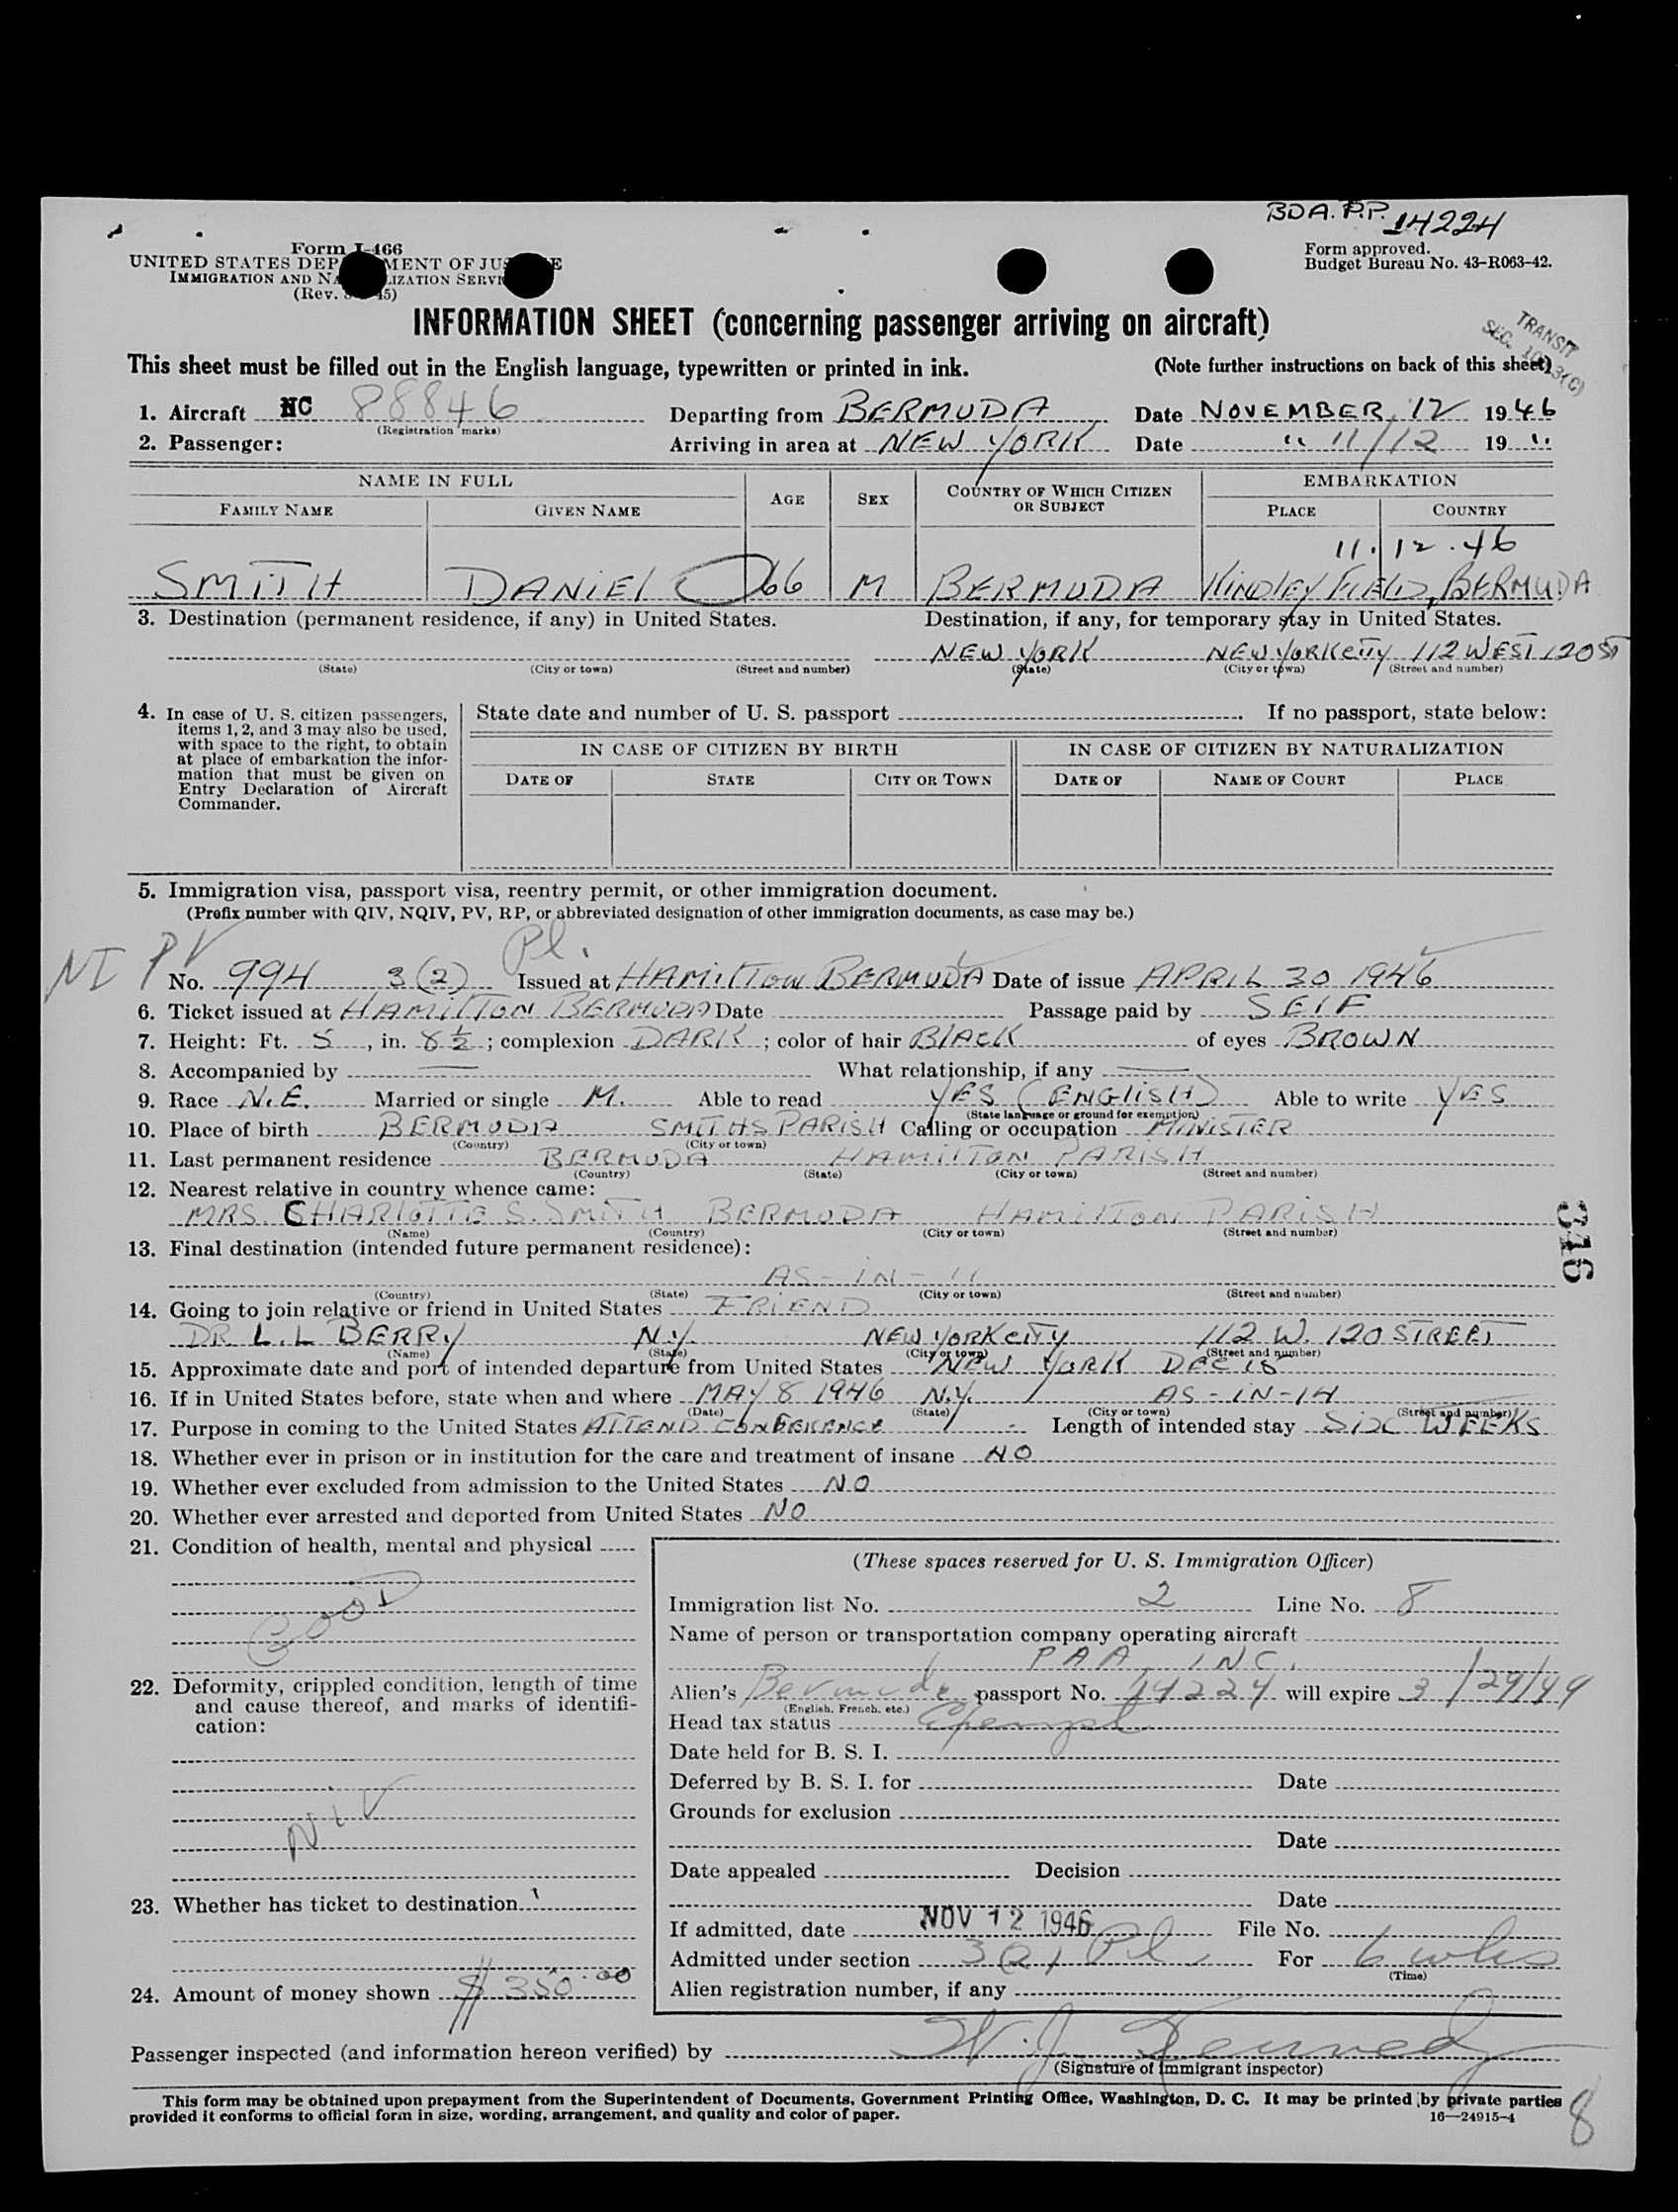 BDA. P.P. 14224
Form I-466
UNITED STATES DEP MENT OF JUS E
IMMIGRATION AND NA LIZATION SERVI
(Rev. 45)
Form approved.
Budget Bureau No. 43-R063-42.
INFORMATION SHEET (concerning passenger arriving on aircraft)
TRANSIT
SEC. 3(C)
This sheet must be filled out in the English language, typewritten or printed in ink. (Note further instructions on back of this sheet)
1. Aircraft NC 88846 Departing from BERMUDA Date NOVEMBER 12 1946
(Registration marks)
2. Passenger: Arriving in area at NEW YORK Date " 11/12 19 "
NAME IN FULL AGE SEX COUNTRY OF WHICH CITIZEN OR SUBJECT EMBARKATION
FAMILY NAME GIVEN NAME PLACE COUNTRY
11.12.46
SMITH DANIEL 66 M BERMUDA KINDLEY FIELD, BERMUDA
3. Destination (permanent residence, if any) in United States. Destination, if any, for temporary stay in United States.
NEW YORK NEW YORK CITY 112 WEST 120 ST
(State) (City or town) (Street and number) (State) (City or town) (Street and number)
4. In case of U. S. citizen passengers, items 1, 2, and 3 may also be used, with space to the right, to obtain at place of embarkation the information that must be given on Entry Declaration of Aircraft Commander.
State date and number of U. S. passport . If no passport, state below:
IN CASE OF CITIZEN BY BIRTH IN CASE OF CITIZEN BY NATURALIZATION
DATE OF STATE CITY OR TOWN DATE OF NAME OF COURT PLACE
5. Immigration visa, passport visa, reentry permit, or other immigration document.
(Prefix number with QIV, NQIV, PV, RP, or abbreviated designation of other immigration documents, as case may be.)
NI PV Pl.
No. 994 3(2) Issued at HAMILTON BERMUDA Date of issue APRIL 30 1946
6. Ticket issued at HAMILTON BERMUDA Date Passage paid by SELF
7. Height: Ft. 5, in. 8 1/2; complexion DARK; color of hair BLACK of eyes BROWN
8. Accompanied by — What relationship, if any —
9. Race N.E. Married or single M. Able to read YES (ENGLISH) Able to write YES
(State language or ground for exemption)
10. Place of birth BERMUDA SMITHS PARISH Calling or occupation MINISTER
(Country) (City or town)
11. Last permanent residence BERMUDA HAMILTON PARISH
(Country) (State) (City or town) (Street and number)
12. Nearest relative in country whence came:
MRS. CHARLOTTE S. SMITH BERMUDA HAMILTON PARISH
(Name) (Country) (City or town) (Street and number)
13. Final destination (intended future permanent residence):
AS - IN - 11
(Country) (State) (City or town) (Street and number)
14. Going to join relative or friend in United States FRIEND
DR. L.L BERRY N.Y. NEW YORK CITY 112 W. 120 STREET
(Name) (State) (City or town) (Street and number)
15. Approximate date and port of intended departure from United States NEW YORK DEC 15
16. If in United States before, state when and where MAY 8 1946 N.Y. AS - IN - 14
(Date) (State) (City or town) (Street and number)
17. Purpose in coming to the United States ATTEND CONFERENCE - Length of intended stay SIX WEEKS
18. Whether ever in prison or in institution for the care and treatment of insane NO
19. Whether ever excluded from admission to the United States NO
20. Whether ever arrested and deported from United States NO
21. Condition of health, mental and physical
GOOD
22. Deformity, crippled condition, length of time and cause thereof, and marks of identification:
NiV
23. Whether has ticket to destination
24. Amount of money shown $350.00
(These spaces reserved for U. S. Immigration Officer)
Immigration list No. 2 Line No. 8
Name of person or transportation company operating aircraft
PAA, INC.
Alien's Bermuda passport No. 14224 will expire 3/29/49
(English, French, etc.)
Head tax status Exempt
Date held for B. S. I.
Deferred by B. S. I. for Date
Grounds for exclusion
Date
Date appealed Decision
Date
If admitted, date NOV 12 1946 File No.
Admitted under section 3(2) Pl. For 6 wks
(Time)
Alien registration number, if any
Passenger inspected (and information hereon verified) by W. J. Kennedy
(Signature of immigrant inspector)
This form may be obtained upon prepayment from the Superintendent of Documents, Government Printing Office, Washington, D. C. It may be printed by private parties
provided it conforms to official form in size, wording, arrangement, and quality and color of paper. 16—24915-4
8
346